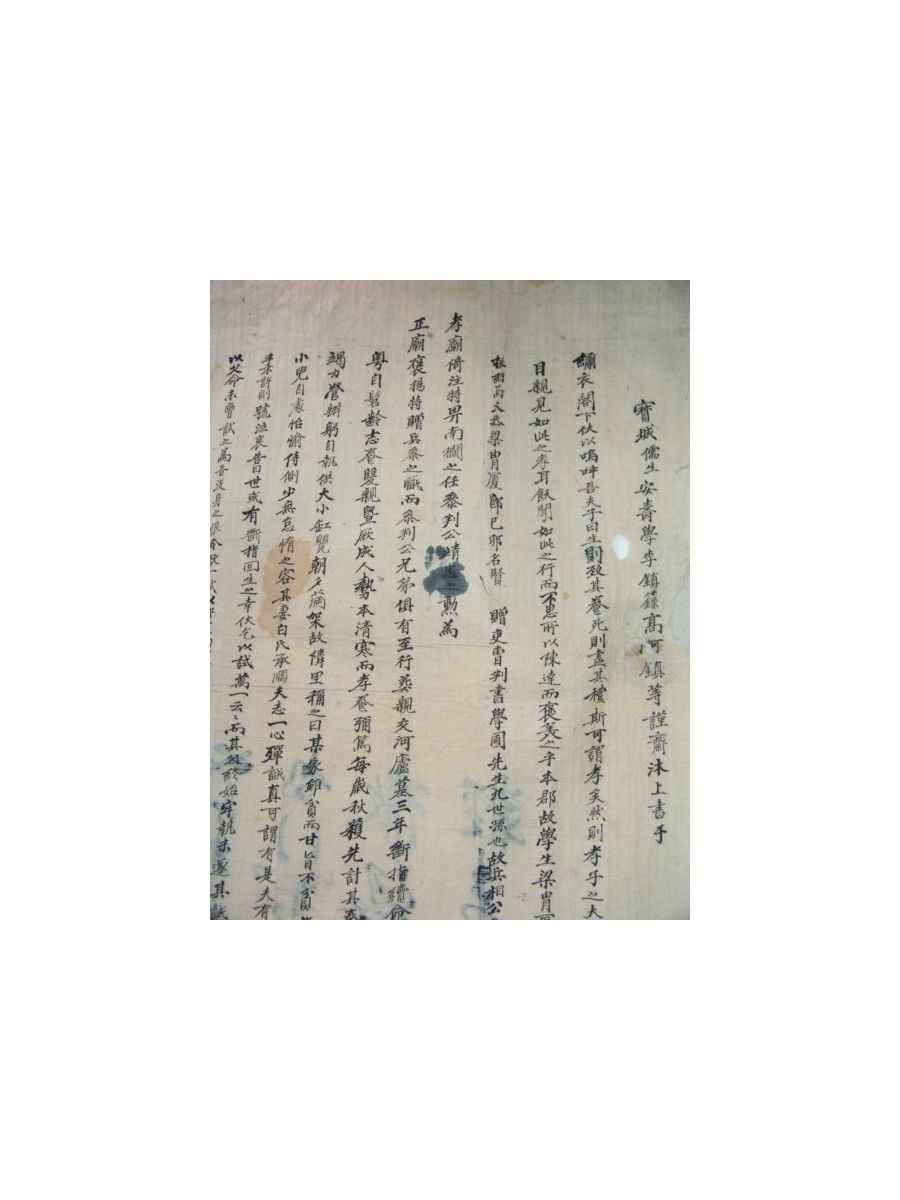 寶城儒生安壽學李鎮籙高河鎮等謹齋沐上書于
繡衣閤下伏以嗚呼吾夫子曰生則致其養死則盡其禮斯可謂孝矣然則孝乎之大
目親見如此之孝耳飫聞如此之行而不思所以陳達而褒美之乎本郡故學生梁胄
梁胄厦 即己卯名賢 贈吏曹判書學圃先生九世孫也故兵相公
孝廟倚注特畀南閫之任叅判公靖 之勲為
正廟褒揚特贈兵叅之職而叅判公兄弟俱有至行葬親交河廬墓三年斷指續命
粤自髫齡志養雙親曁厥成人勢本清寒而孝養彌篤每歲秋穫先計其
竭力營辦躬自執供大小缸甖朝夕滿架故隣里稱之曰某家雖貧而甘旨不
小兒自慮怡愉侍側少無怠惰之容其妻白氏承順夫志一心殫誠真可謂有是夫有
手未許則號泣哀告曰世或有斷指回生之幸伏乞以試萬一云云而其 終始牢執未遂其誠
以父命未曾試之為吾沒身之恨今欲一試